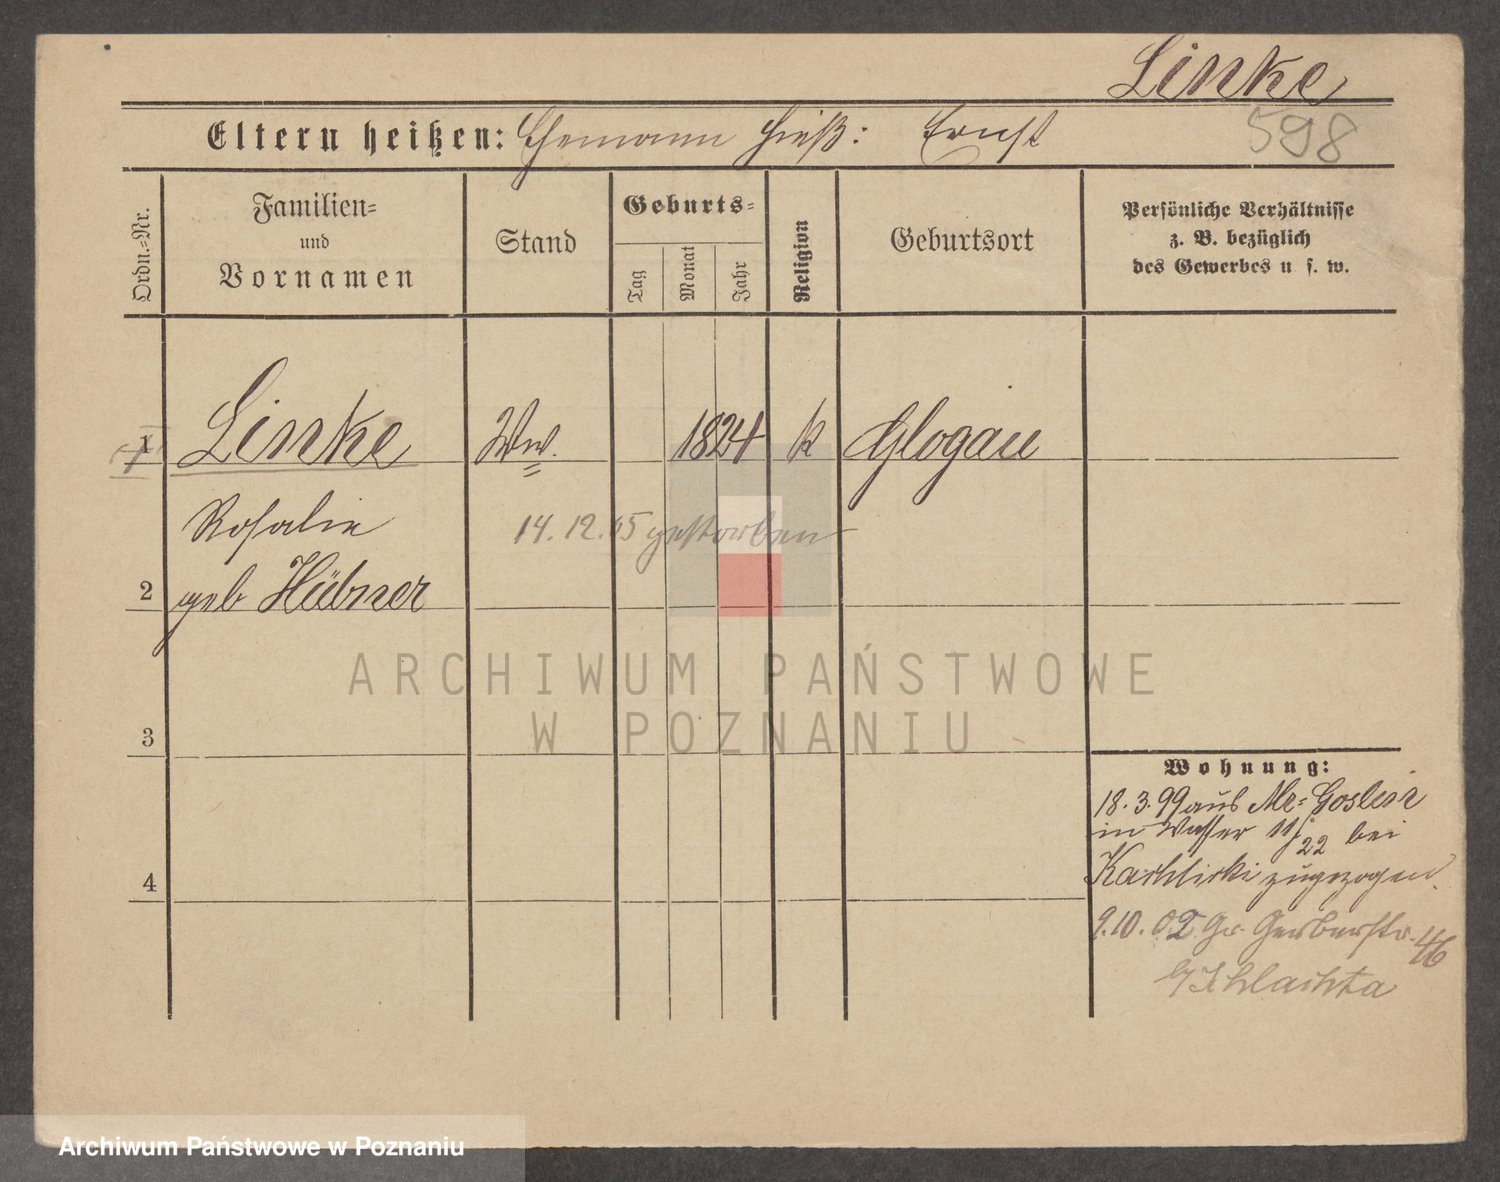 Linke
598
Eltern heißen: Ehemann hieß: Ernst
Ordn.=Nr.
Familien=
und
Vornamen
Stand
Geburts=
Tag
Monat
Jahr
Religion
Geburtsort
Persönliche Verhältnisse
z. B. bezüglich
des Gewerbes u s. w.
1 Linke Ww. 1824 k Glogau
Rosalie
14. 12. 05 gestorben
2 geb Hübner
ARCHIWUM PAŃSTWOWE
W POZNANIU
3
Wohnung:
18. 3. 99 aus Mr=Goslin
in Wasser 11/22 bei
Kachlicki zugezogen.
4
9.10.02 Gr. Gerberstr. 46
b/Schlachta
Archiwum Państwowe w Poznaniu